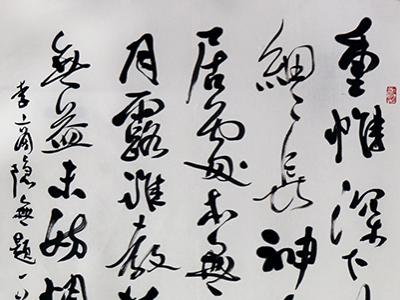 重帷深下
細々長神
居處本無
月露誰教
無益未妨惆
李商隱無題一